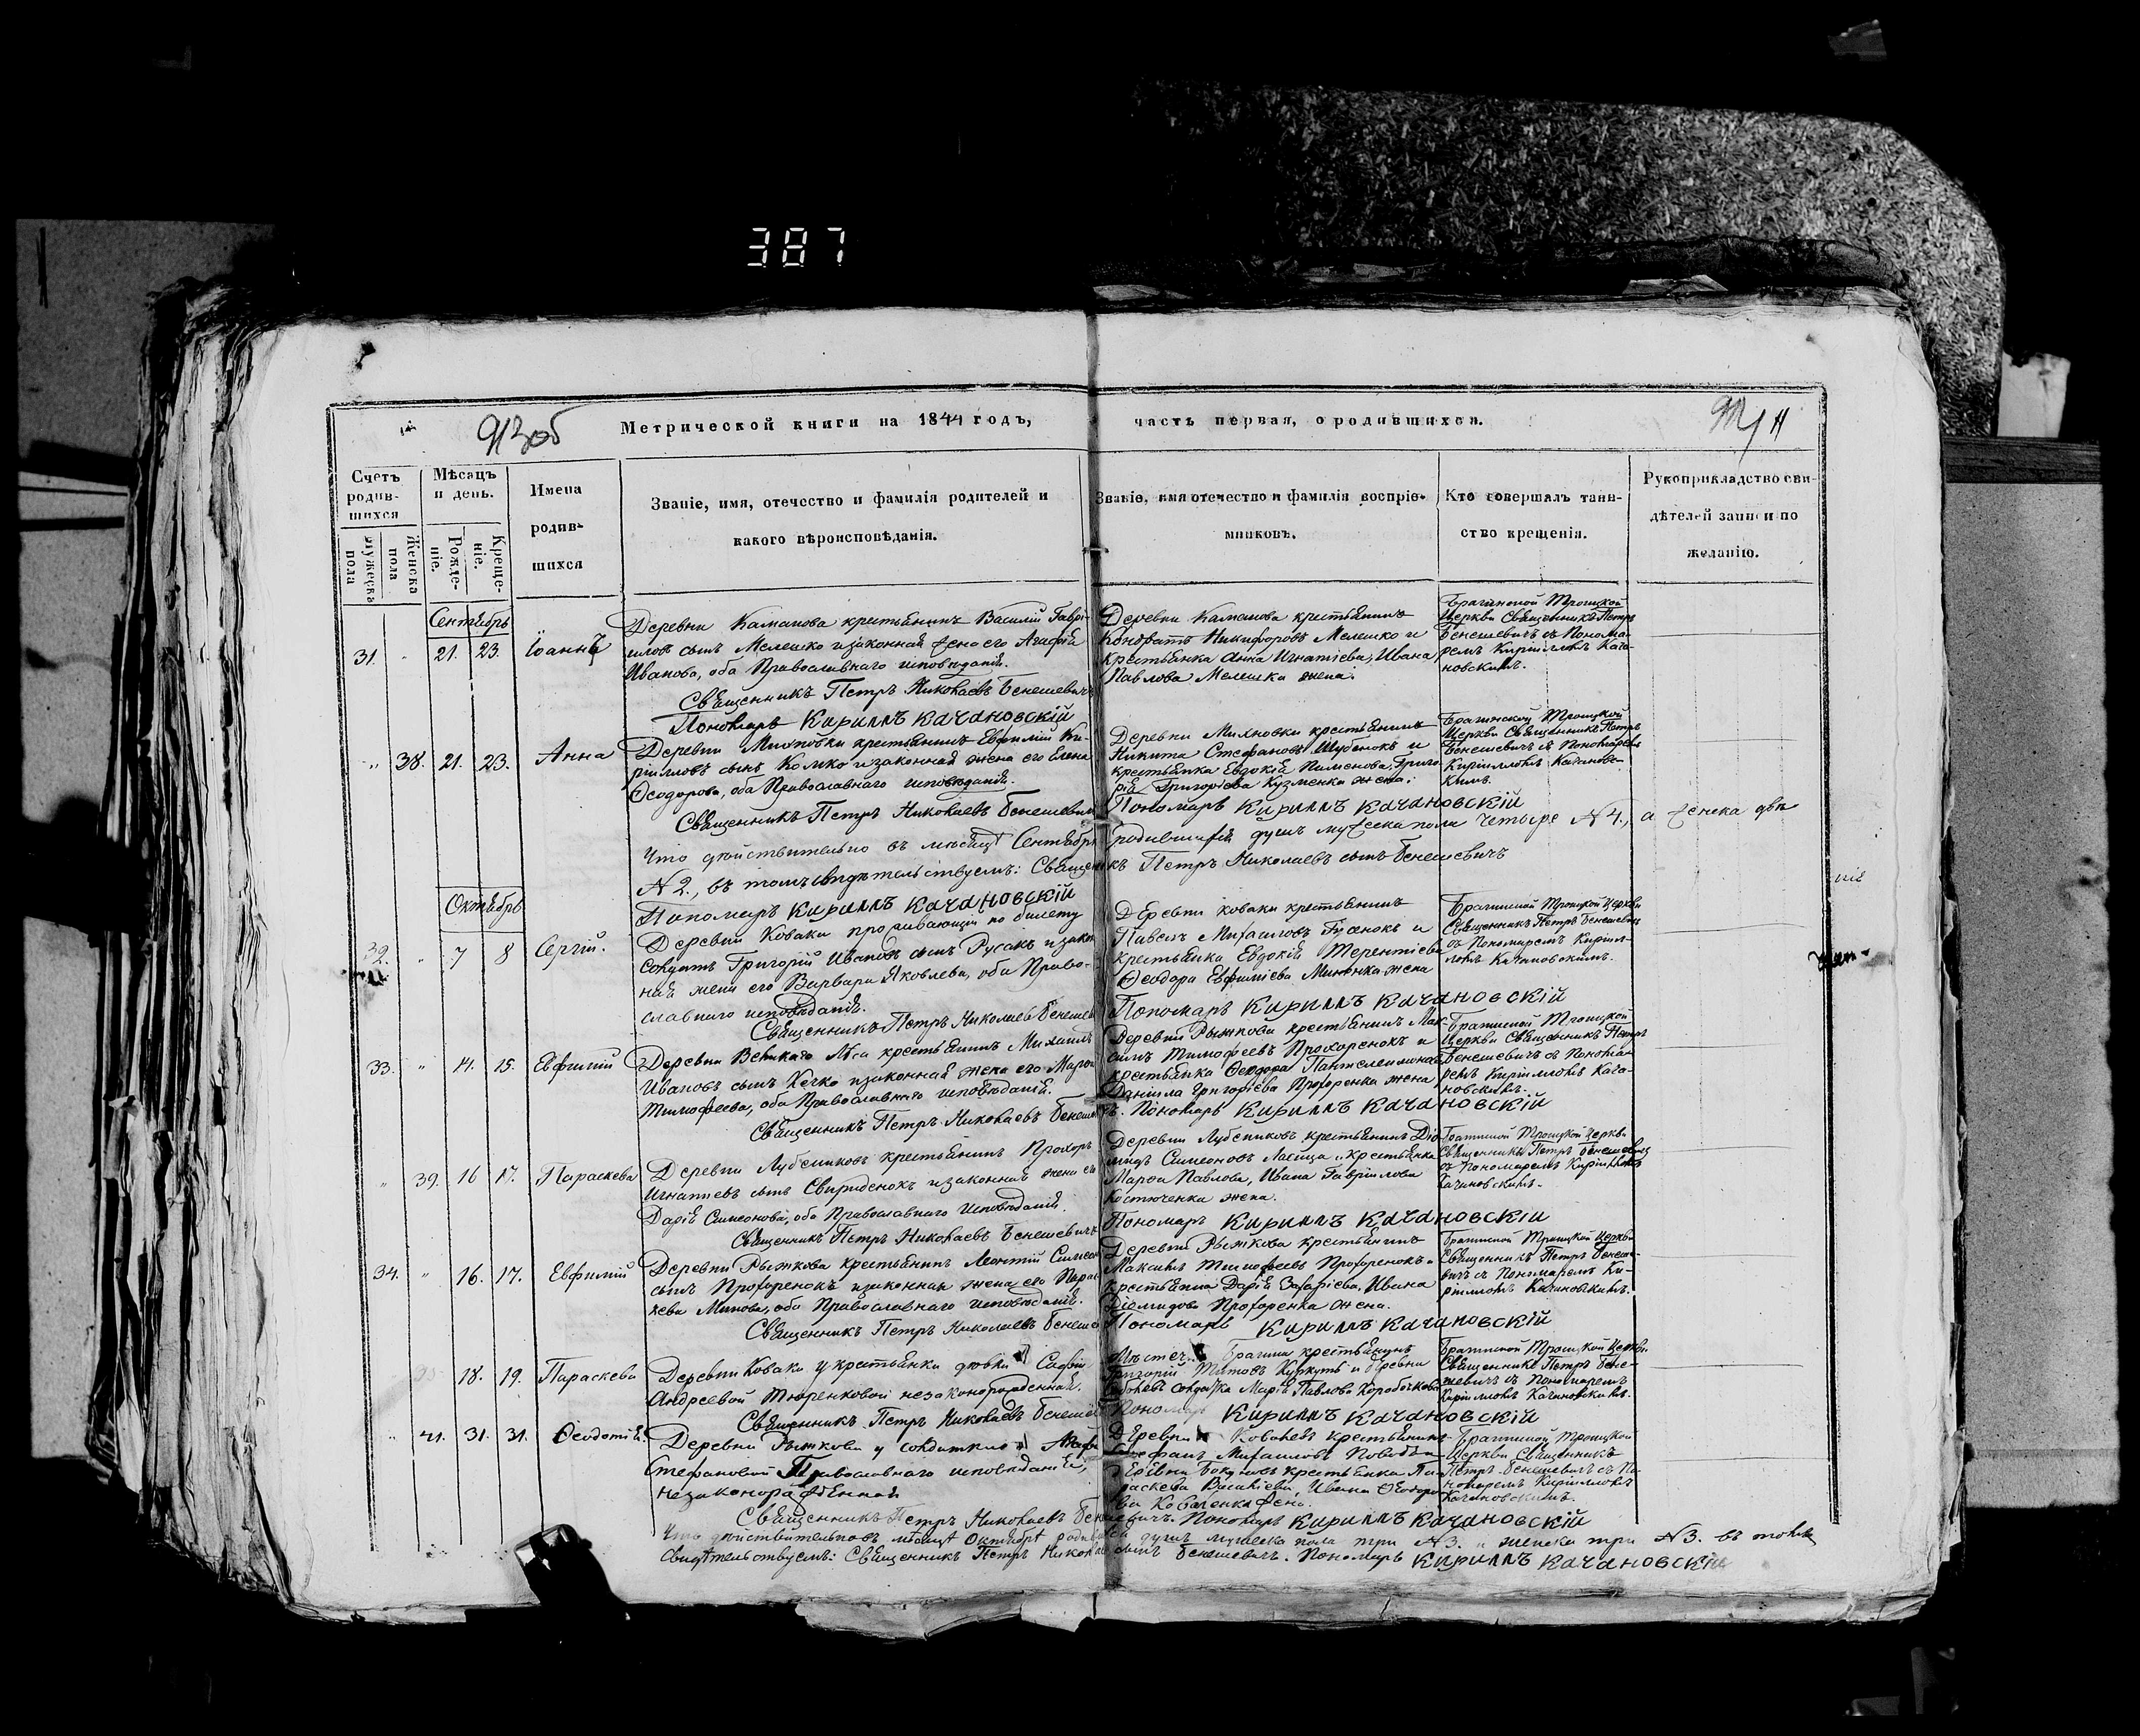 387
913об
Метрической книги на 1844 годъ,
часть первая, о родившихся.
Счетъ родив-шихся
Мужеска пола
Женска пола
Мѣсяцъ и день.
Рожде-ніе.
Креще-ніе.
Имена
родив-
шихся
Званіе, имя, отечество и фамилія родителей и
какого вѣроисповѣданія.
Званіе, имя отечество и фамилія воспріе-
мниковъ.
Кто совершалъ таин-
ство крещенія.
Рукоприкладство сви-
дѣтелей записи по
желанію.
Сентябрь
31. " 21. 23. Іоаннъ
Деревни Каманова крестьянинъ Василій Гаврі-
иловъ сынъ Мелешко и законная жена его Агафія
Иванова, оба Православнаго исповѣданія.
Священникъ Петръ Николаевъ Бенешевичъ
Пономарь Кириллъ Качановскій
Деревни Каменова крестьянинъ
Кондратъ Никифоровъ Мелешко и
крестьянка Анна Игнатіева, Ивана
Павлова Мелешки жена.
Брагинской Троицкой
Церкви Священникъ Петръ
Бенешевичъ съ Понома-
ремъ Кирилломъ Кача-
новскимъ.
" 38. 21. 23. Анна
Деревни крестьянинъ Евфимій Ки-
рилловъ сынъ Комко и законная жена его Елена
Ѳеодорова, оба Православнаго исповѣданія.
Священникъ Петръ Николаевъ Бенешевичъ
Деревни крестьянинъ
Никита Стефановъ Шубенокъ и
крестьянка Евдокія Пименова, Григо-
рія Григоріева Кузменка жена.
Пономарь Кириллъ Качановскій
Брагинской Троицкой
Церкви Священникъ Петръ
Бенешевичъ съ Пономаремъ
Кирилломъ Качановс-
кимъ.
Что дѣйствительно въ мѣсяцѣ Сентябрѣ родившихся душъ мужеска пола четыре N 4., а женска двѣ
N 2., въ томъ свидѣтельствуемъ: Священникъ Петръ Николаевъ сынъ Бенешевичъ
Пономарь Кириллъ Качановскій
Октябрь
32. " 7 8 Сергій.
Деревни Коваки проживающій по билету
Солдатъ Григорій Ивановъ сынъ Русакъ и закон-
ная жена его Варвара Яковлева, оба Право-
славнаго исповѣданія.
Священникъ Петръ Николаевъ Бенешев
Деревни Коваки крестьянинъ
Павелъ Михаиловъ Гусенокъ и
крестьянка Евдокія Терентіева
Ѳеодора Евфиміева жена
Пономарь Кириллъ Качановскій
Брагинской Троицкой Церкви
Священникъ Петръ Бенешевичъ
съ Пономаремъ Кирил-
ломъ Качановскимъ.
33. " 14. 15. Евфимій
Деревни Великаго Лѣса крестьянинъ Михаилъ
Ивановъ сынъ и законная жена его Марѳа
Тимофеева, оба Православнаго исповѣданія.
Священникъ Петръ Николаевъ Бенешевичъ.
Деревни Рыжкова крестьянинъ Мак-
симъ Тимофеевъ Прохоренокъ и
крестьянка Ѳеодора Пантелеимонова
Даніила Григорьева Прохоренка жена
Пономарь Кириллъ Качановскій
Брагинской Троицкой
Церкви Священникъ Петръ
Бенешевичъ съ Понома-
ремъ Кирилломъ Кача-
новскимъ.
" 39. 16 17. Параскева
Деревни Лубениковъ крестьянинъ Прохоръ
Игнатіевъ сынъ Свириденокъ и законная жена его
Дарія Симеонова, оба Православнаго исповѣданія.
Священникъ Петръ Николаевъ Бенешевичъ
Деревни Лубениковъ крестьянинъ Діо-
мидъ Симеоновъ Ласица и крестьянка
Марѳа Павлова, Ивана Гавріилова
Костюченка жена.
Пономарь Кириллъ Качановскій
Брагинской Троицкой Церкви
Священникъ Петръ Бенешевичъ
съ Пономаремъ Кирилломъ
Качановскимъ.
34. " 16. 17. Евфимій
Деревни Рыжкова крестьянинъ Леонтій Симеон
сынъ Прохоренокъ и законная жена его Парас-
кева Минова, оба Православнаго исповѣданія.
Священникъ Петръ Николаевъ Бенеше
Деревни Рыжкова крестьянинъ
Максимъ Тимофеевъ Прохоренокъ и
крестьянка Дарія Захаріева, Ивана
Діомидова Прохоренка жена.
Пономарь Кириллъ Качановскій
Брагинской Троицкой Церкви
Священникъ Петръ Бенеше-
вичъ съ Пономаремъ Ки-
рилломъ Качановскимъ.
18. 19. Параскева
Деревни Коваки у крестьянки дѣвки Софіи
Андреевой Тюренковой незаконорожденная.
Священникъ Петръ Николаевъ Бенешев
Мѣстеч. Брагина крестьянинъ
Григорій Титовъ Куркуть и деревни
солдатка Марія Павлова Коробочкова
Пономарь Кириллъ Качановскій
Брагинской Троицкой Церкви
Священникъ Петръ Бене-
шевичъ съ Пономаремъ
Кирилломъ Качановскимъ.
" 41. 31. 31. Ѳеодотія.
Деревни Рыжкова у солдатки
Стефановой Православнаго исповѣданія,
незаконорожденная
Священникъ Петръ Николаевъ Бенешевичъ. Пономарь Кириллъ Качановскій
Деревни крестьянинъ
Стефанъ Михаиловъ
Деревни крестьянка Па-
раскева Василіева, Ивана Ѳеодоро-
ва Коваленка жена.
Брагинской Троицкой
Церкви Священникъ
Петръ Бенешевичъ съ По-
номаремъ Кирилломъ
Качановскимъ.
Что дѣйствительно въ мѣсяцѣ Октябрѣ родившихся душъ мужеска пола три N 3. и женска три N 3. въ томъ
свидѣтельствуемъ: Священникъ Петръ Николаевъ сынъ Бенешевичъ. Пономарь Кириллъ Качановскій